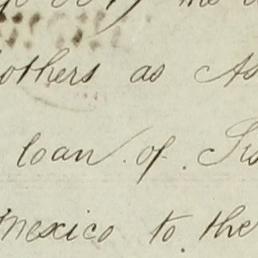 others as As
loan of
Mexico to the